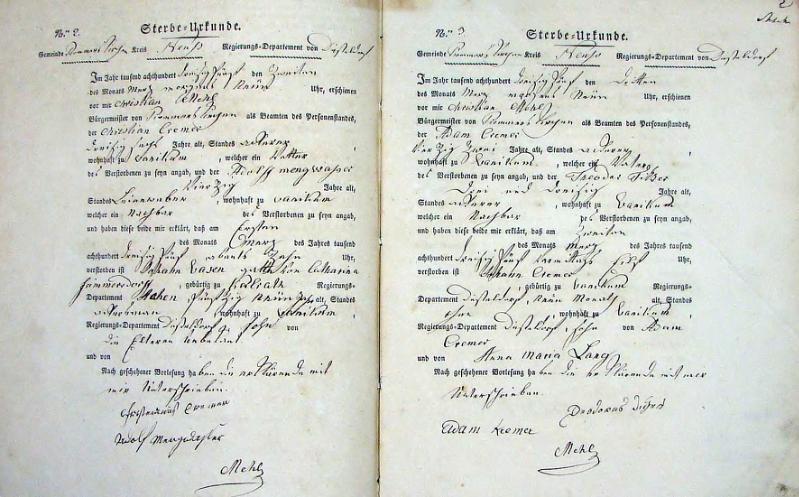 Nro 2.
Sterbe-Urkunde.
Gemeinde Rommerskirchen Kreis Neuss Regierungs-Departement von Düsseldorf
Im Jahr tausend achthundert dreisig fünf den Zweiten
des Monats Merz morgens Neun Uhr, erschienen
vor mir Christian Mehl
Bürgermeister von Rommerskirchen als Beamten des Personenstandes,
der Christian Cremer
dreisig sechs Jahre alt, Standes Ackerer
wohnhaft zu Vanikum, welcher ein Vetter
des Verstorbenen zu seyn angab, und der Adolff Mengwasser
Vierzig Jahre alt,
Standes Leineweber, wohnhaft zu Vanikum
welcher ein Nachbar des Verstorbenen zu seyn angab,
und haben diese beide mir erklärt, daß am Ersten
des Monats Merz des Jahres tausend
achthundert dreisig fünf abends Zehn Uhr,
verstorben ist Johann Gatte von Catharina
, gebürtig zu Regierungs-
Departement Aachen fünfzig Neun Jahre alt, Standes
Ackersmann wohnhaft zu Vanikum,
Regierungs-Departement Düsseldorf, Sohn von
die Elteren unbekant
und von
Nach geschehener Vorlesung haben die erklärende mit
mir Unterschrieben.
Cremer
Adolf Mengwasser
Mehl
2
Nro 3
Sterbe-Urkunde.
Gemeinde Rommerskirchen Kreis Neuss Regierungs-Departement von Düsseldorf
Im Jahr tausend achthundert dreisig fünf den Dritten
des Monats Merz morgens Neun Uhr, erschienen
vor mir Christian Mehl
Bürgermeister von Rommerskirchen als Beamten des Personenstandes,
der Adam Cremer
Vierzig Zwei Jahre alt, Standes Ackerer
wohnhaft zu Vanikum, welcher ein Vater
des Verstorbenen zu seyn angab, und der Theodor
Drei und Dreisig Jahre alt,
Standes Ackerer, wohnhaft zu Vanikum
welcher ein Nachbar des Verstorbenen zu seyn angab,
und haben diese beide mir erklärt, daß am Zweiten
des Monats Merz des Jahres tausend
achthundert dreisig fünf Vormittags Uhr,
verstorben ist Johann Cremer
, gebürtig zu Vanikum Regierungs-
Departement Düsseldorf, Neun Monat alt, Standes
ohne wohnhaft zu Vanikum
Regierungs-Departement Düsseldorf, Sohn von Adam
Cremer
und von Anna Maria Lang
Nach geschehener Vorlesung haben die erklärende mit mir
Unterschrieben.
Adam Kremer
Mehl